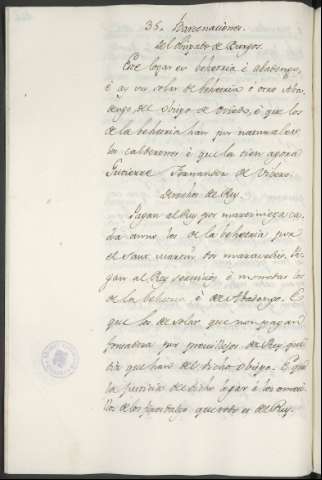 35. Barcenaciones.
del Obispado de Burgos.
Este logar es behetria è abadengo,
è ay un solar de behetria è otro Aba-
dengo del Obispo de Oviedo, è que los
de la behetria han por naturales
los calderones è que la tien agora
Gutierre Fernandez de
Derechos de Rey.
Pagan al Rey por martiniega ca-
da anno los de la behetria por
el Sant Martin dos maravedis. Pa-
gan al Rey servicios è monedas los
de la behetria è de Abadengo. E
que los de solar que non pagan
fonsadera por previllejos de Rey que
diz que han del dicho Obispo. E que
la justicia del dicho logar è los omeci-
llos de los que es del Rey.